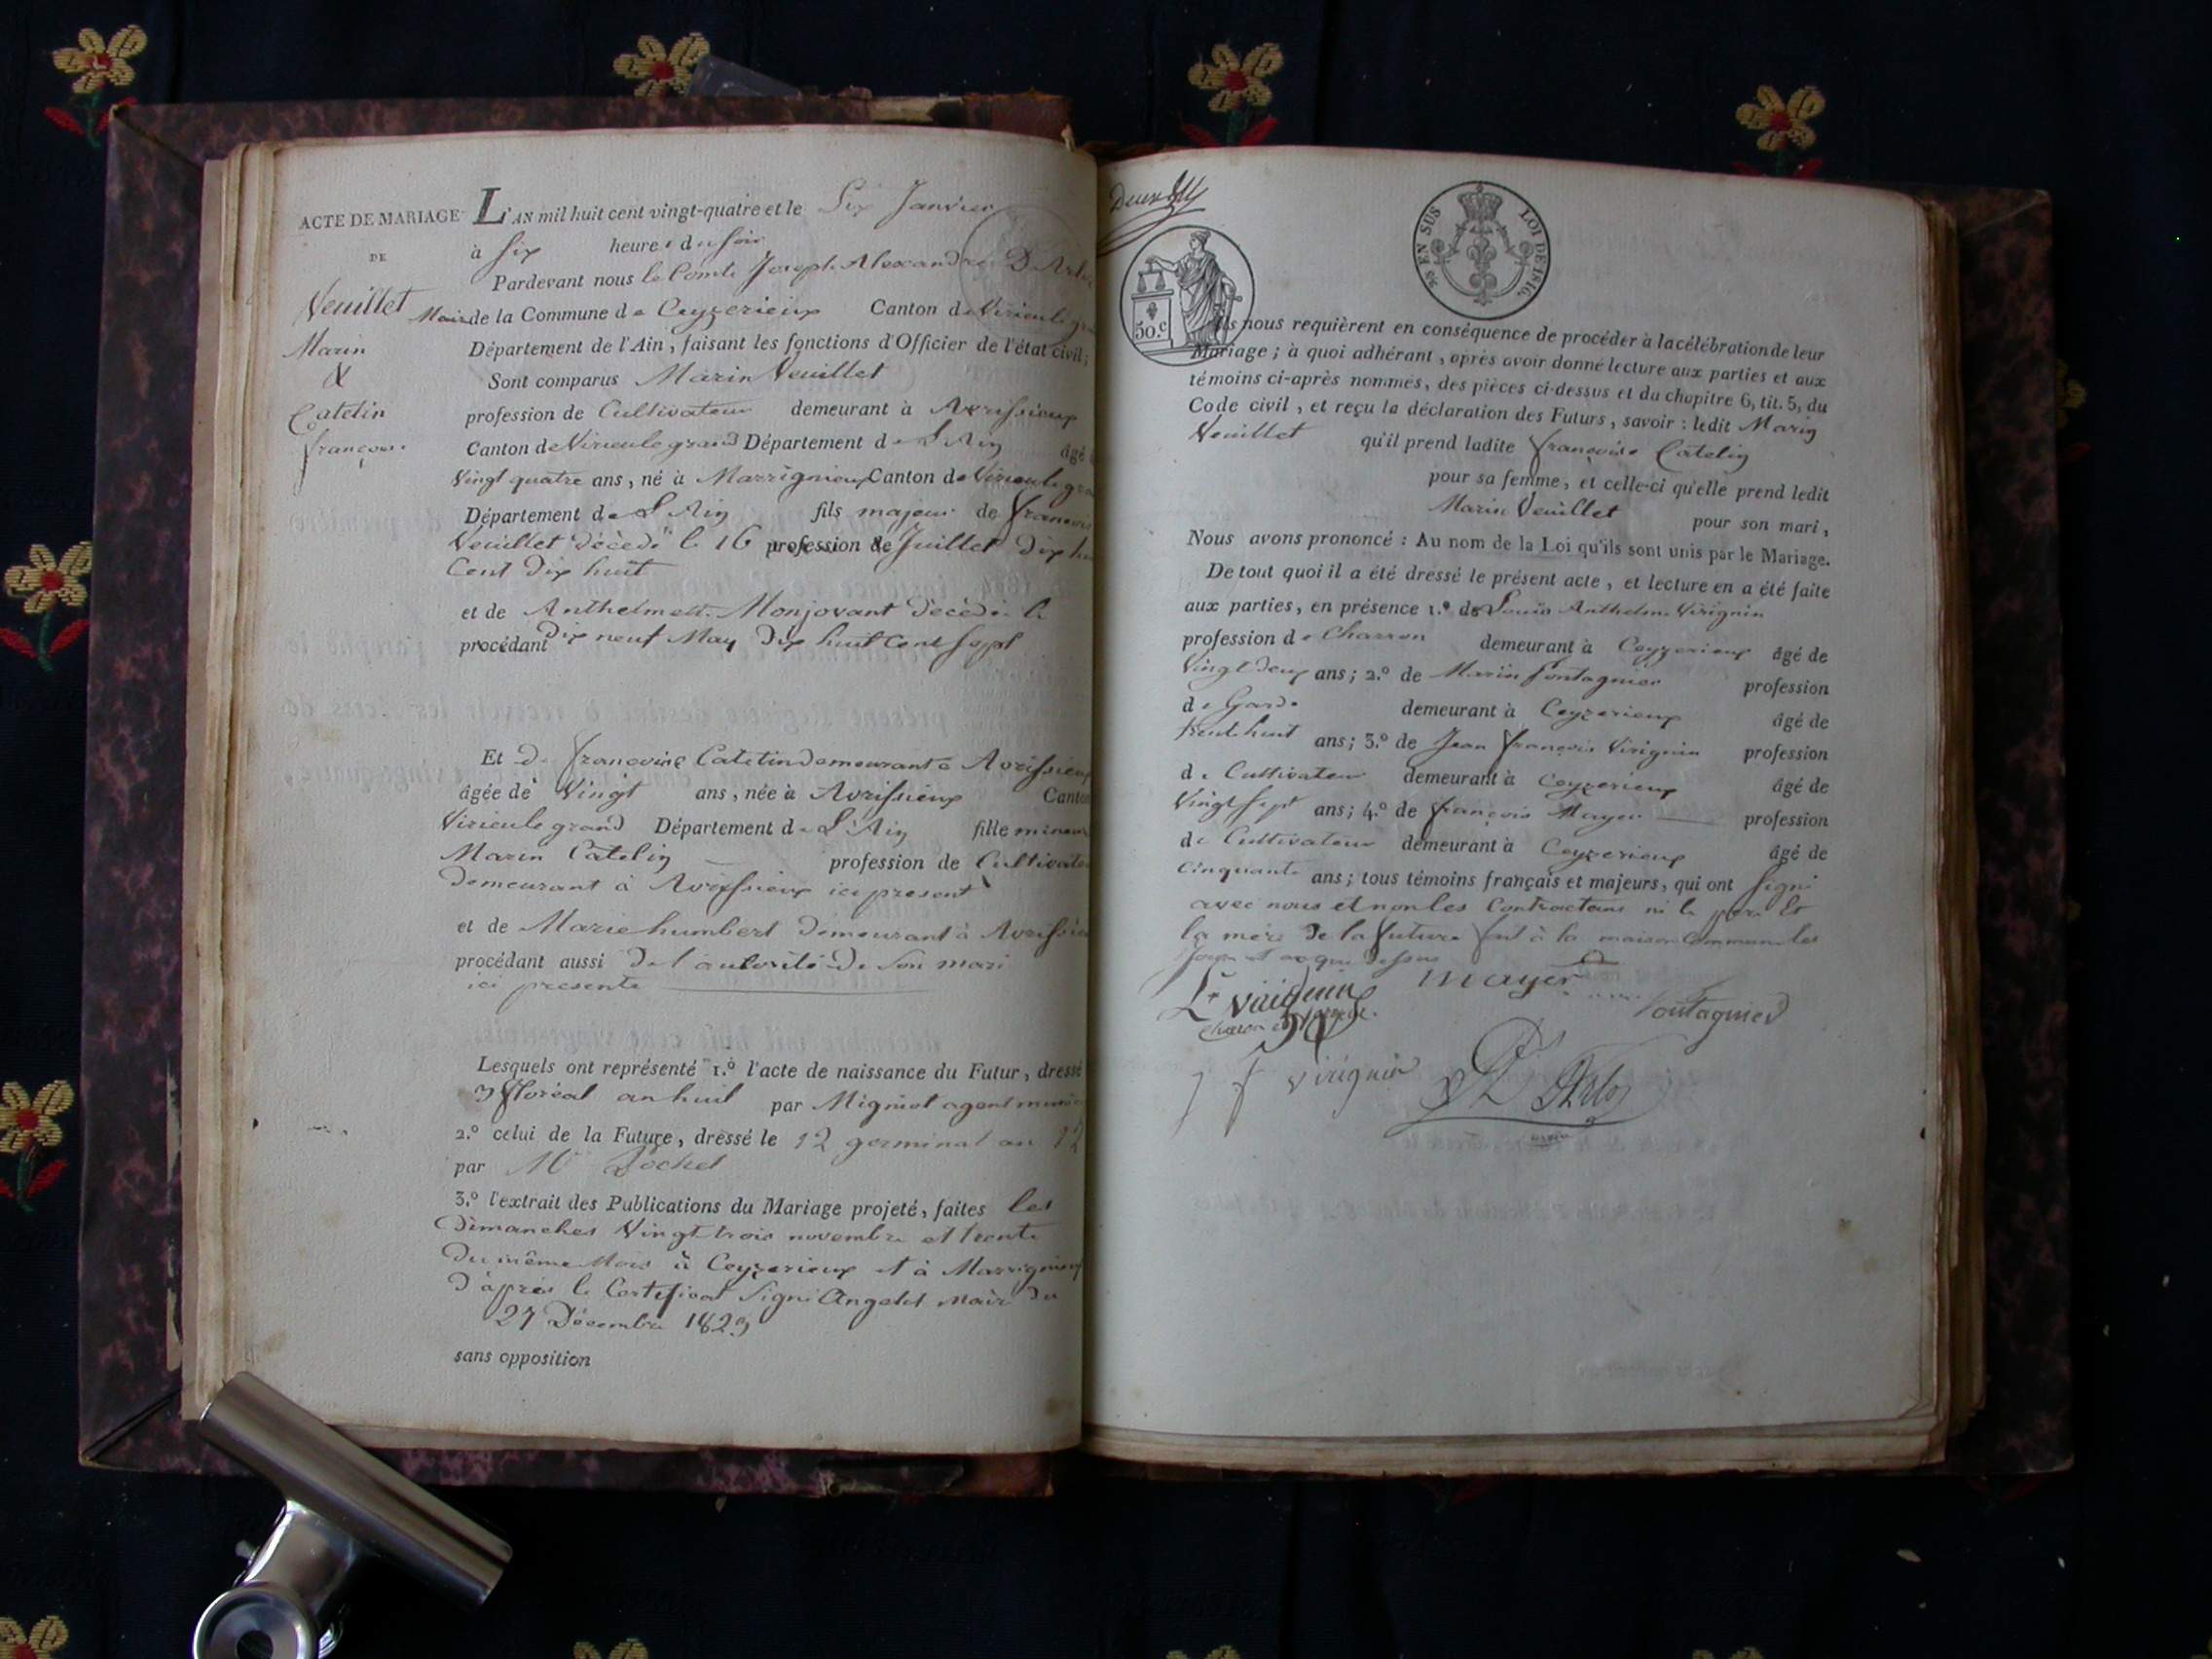 ACTE DE MARIAGE
DE
Veuillet
Marin
&
Catelin
françoise
L'AN mil huit cent vingt-quatre et le Six Janvier
à six heures du soir
Pardevant nous le Comte Joseph Alexandre D'Arlo
Maire de la Commune de Ceyzerieux Canton de Virieulegra
Département de l'Ain, faisant les fonctions d'Officier de l'état civil;
Sont comparus Marin Veuillet
profession de Cultivateur demeurant à Avrissieux
Canton de Virieulegrand Département de L'Ain âgé
Vingt quatre ans, né à Marrignieux Canton de Virieulegra
Département de L'Ain fils majeur de françois
Veuillet décédé le 16 profession de Juillet dix hu
Cent dix huit
et de Anthelmette Monjovant décédée le
procédant dix neuf May dix huit Cent Sept
Et de francoise Catelin demeurant a Avrissieux
âgée de Vingt ans, née à Avrissieux Canton
Virieule grand Département de L'Ain fille mineure
Marin Catelin profession de Cultivate
demeurant à Avrissieux ici présent
et de Marie humbert demeurant à Avrissie
procédant aussi De l'autorité de Son mari
ici presente
Lesquels ont représenté 1.º l'acte de naissance du Futur, dressé
3 floréal an huit par Migniot agent muni
2.º celui de la Future, dressé le 12 germinal an 12
par Mr Jochet
3.º l'extrait des Publications du Mariage projeté, faites les
dimanches Vingt trois novembre et trente
du même Mois à Ceyzerieux et à Marrignieux
D'après le Certificat Signé Angelet maire du
27 Décembre 1823
sans opposition
50.C
⅖ EN SUS LOI DE 1816.
Ils nous requièrent en conséquence de procéder à la célébration de leur
Mariage; à quoi adhérant, après avoir donné lecture aux parties et aux
témoins ci-après nommés, des pièces ci-dessus et du chapitre 6, tit. 5, du
Code civil, et reçu la déclaration des Futurs, savoir: ledit Marin
Veuillet qu'il prend ladite françoise Catelin
pour sa femme, et celle-ci qu'elle prend ledit
Marin Veuillet pour son mari,
Nous avons prononcé: Au nom de la Loi qu'ils sont unis par le Mariage.
De tout quoi il a été dressé le présent acte, et lecture en a été faite
aux parties, en présence 1.º de Louis Anthelme Virignin
profession de Charron demeurant à Ceyzerieux âgé de
Vingt deux ans; 2.º de Marin fontagnier profession
de Garde demeurant à Ceyzerieux âgé de
trente huit ans; 3.º de Jean françois Virignin profession
de Cultivateur demeurant à Ceyzerieux âgé de
Vingt Sept ans; 4.º de françois Mayer profession
de Cultivateur demeurant à Ceyzerieux âgé de
Cinquante ans; tous témoins français et majeurs, qui ont Signé
avec nous et non les Contractans ni le père Et
la mère De la future fait à la maison Commune les
jour et an que dessus
Mayer
fontagnier
J f virignin
D'Arloz